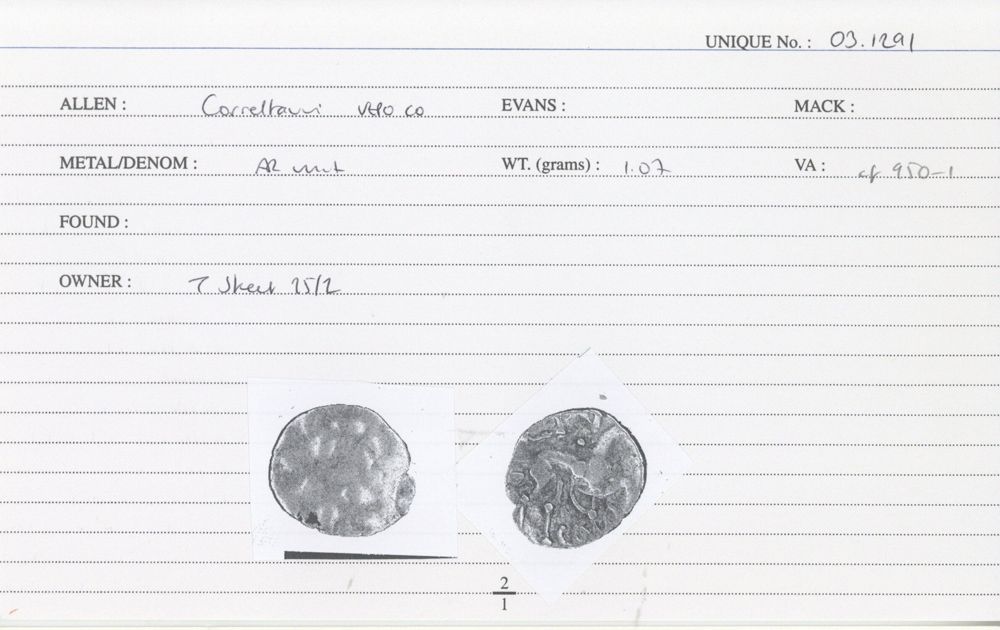 UNIQUE No. : 03.1291
ALLEN : Correltauvi VEP CO EVANS : MACK :
METAL/DENOM : AR unit WT. (grams) : 1.07 VA : cf 950-1
FOUND :
OWNER : T Skeet 25/2
2
1